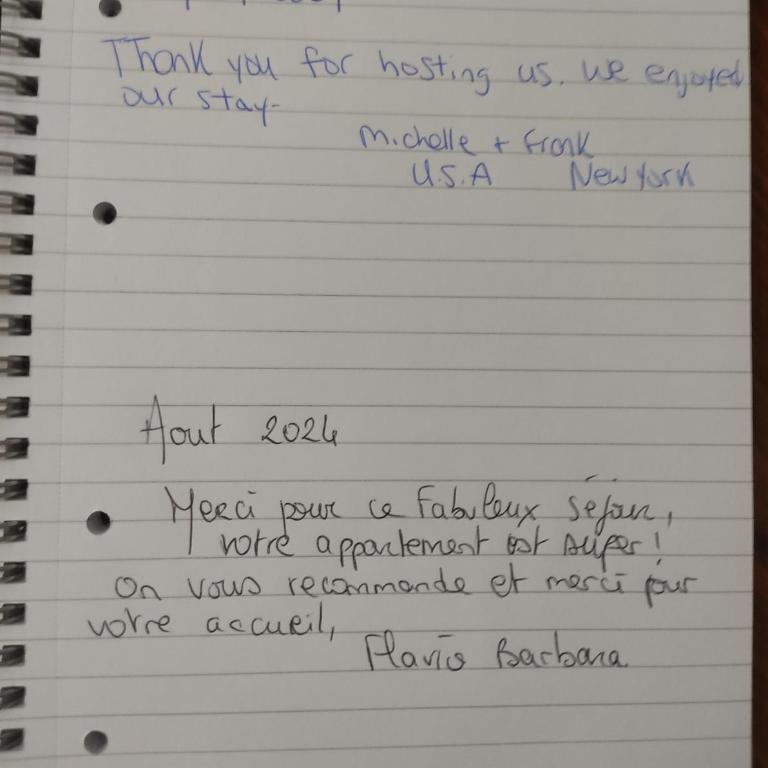 Thank you for hosting us. We enjoyed
our stay-
Michelle + Frank
U.S.A New York
Aout 2024
Merci pour ce fabuleux séjour,
votre appartement est super!
On vous recommande et merci pour
votre accueil,
Flavio Barbara